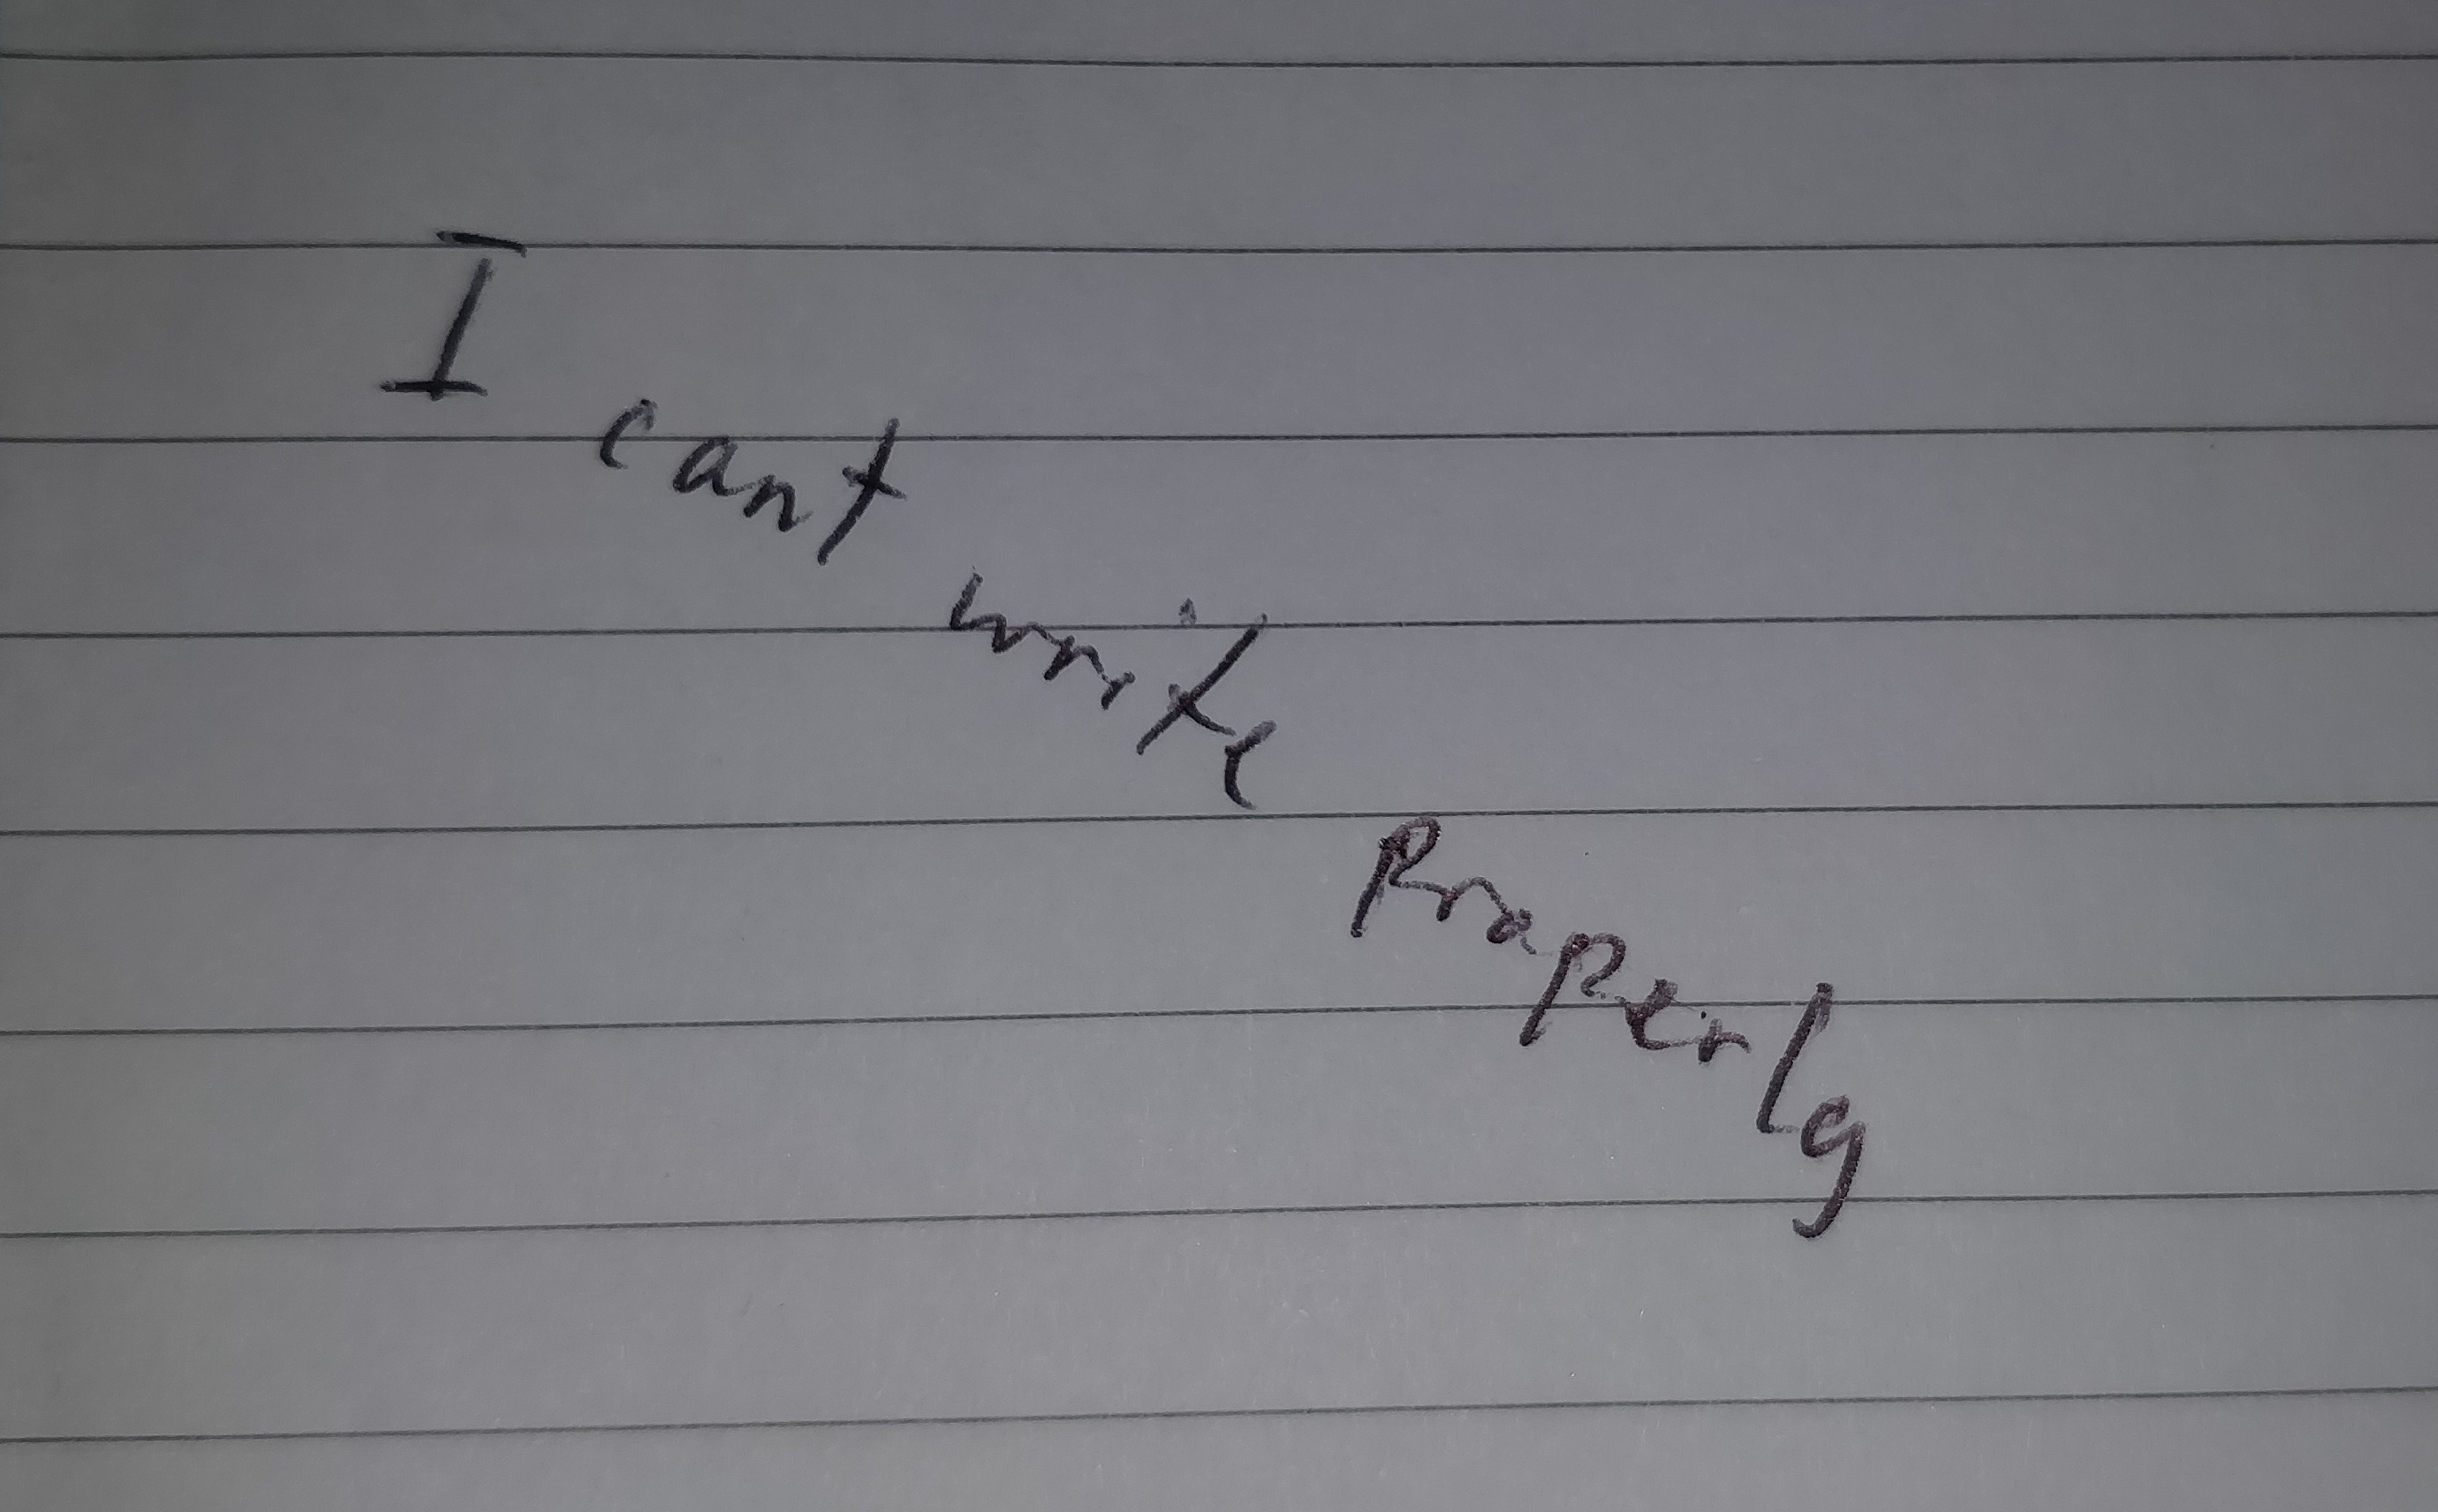 I cant write Properly